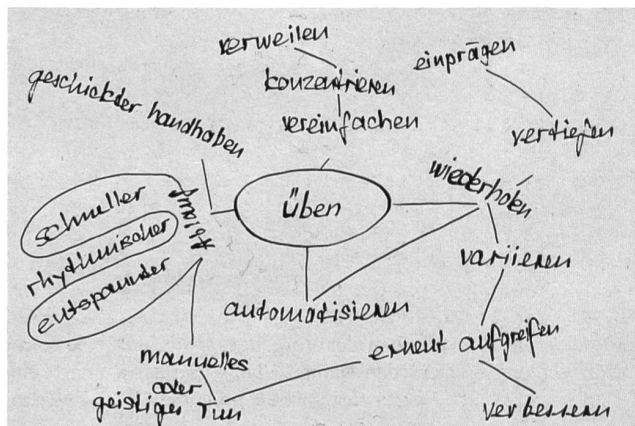 verweilen
konzentrieren
vereinfachen
einprägen
vertiefen
geschickter handhaben
üben
wiederholen
schneller
rhythmischer
entspannter
variieren
automatisieren
erneut aufgreifen
manuelles
oder
geistiges Tun
verbessern